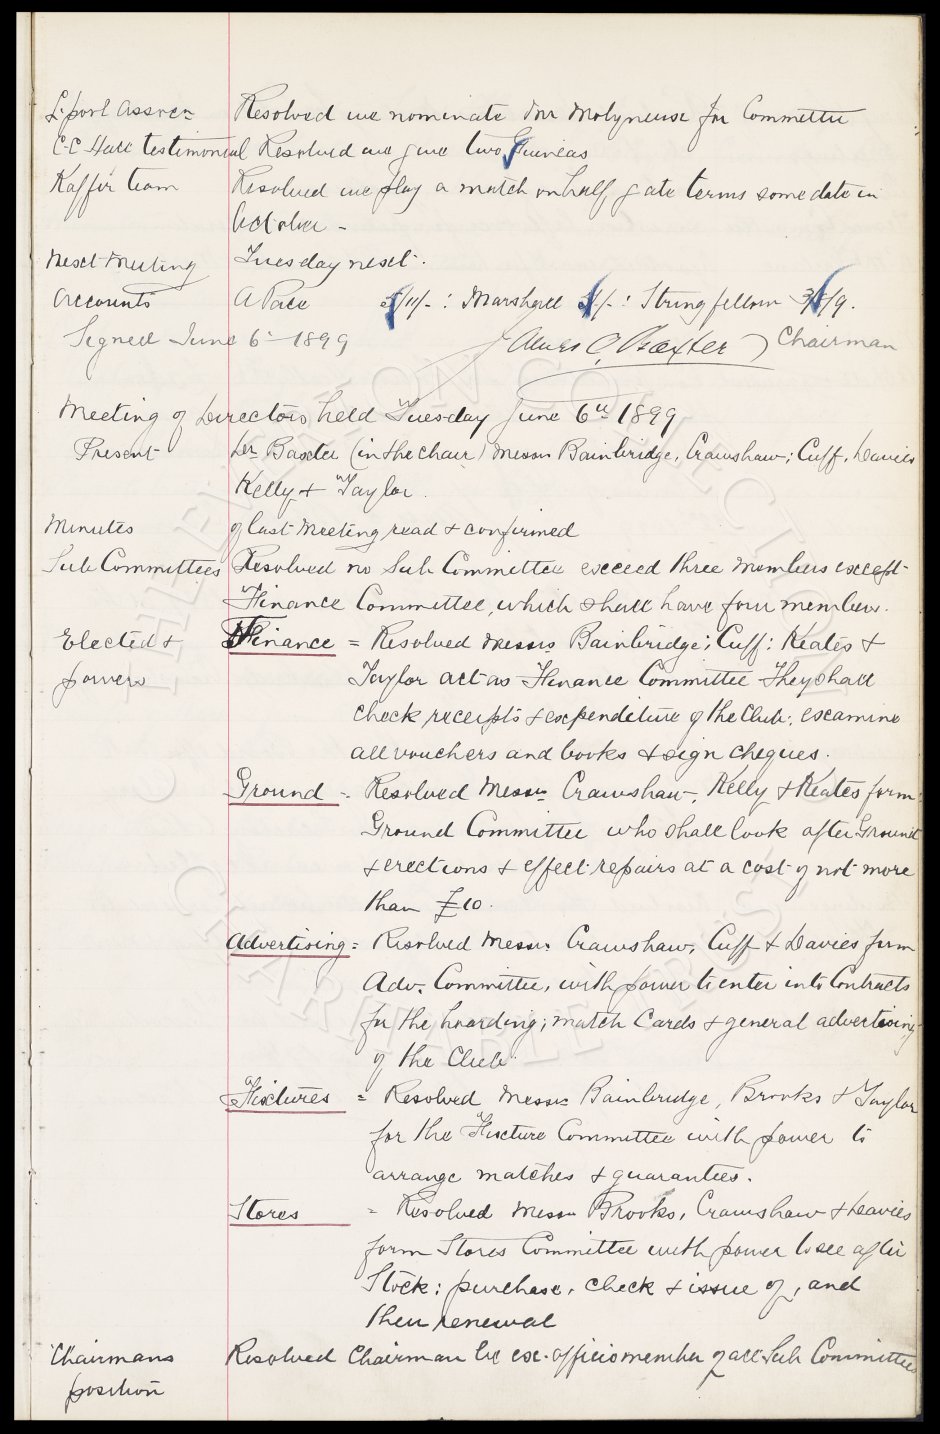 L'pool Assocn Resolved we nominate Mr Molyneux for Committee
C.C Hall testimonial Resolved we give two Guineas
Kaffir team Resolved we play a match on half gate terms some date in
October -
Next Meeting Tuesday next.
Accounts A Pace /11/- : Marshall /- : Stringfellow 3/ /9.
Signed June 6th 1899 James C. Baxter Chairman
Meeting of Directors held Tuesday June 6th 1899
Present Dr Baxter (in the chair) Messrs Bainbridge, Crawshaw; Cuff, Davies
Kelly & Taylor.
Minutes of last Meeting read & confirmed
Sub Committees Resolved no Sub Committee exceed three members except
Finance Committee, which shall have four members.
Elected & Finance = Resolved Messrs Bainbridge; Cuff: Keates &
powers Taylor act as Finance Committee They shall
check receipts & expenditure of the Club; examine
all vouchers and books & sign cheques.
Ground = Resolved Messrs Crawshaw, Kelly & Keates form
Ground Committee who shall look after Ground
& erections & effect repairs at a cost of not more
than £10.
Advertising = Resolved Messrs Crawshaw, Cuff & Davies form
Adv. Committee, with power to enter into Contracts
for the hoarding; match Cards & general advertising
of the Club.
Fixtures = Resolved Messrs Bainbridge, Brooks & Taylor
for the Fixture Committee with power to
arrange matches & guarantees.
Stores = Resolved Messrs Brooks, Crawshaw & Davies
form Stores Committee with power to see after
Stock; purchase, check & issue of, and
their renewal
Chairmans Resolved Chairman be ex-officio member of all Sub Committees
position
THE EVERTON COLLECTION
CHARITABLE TRUST